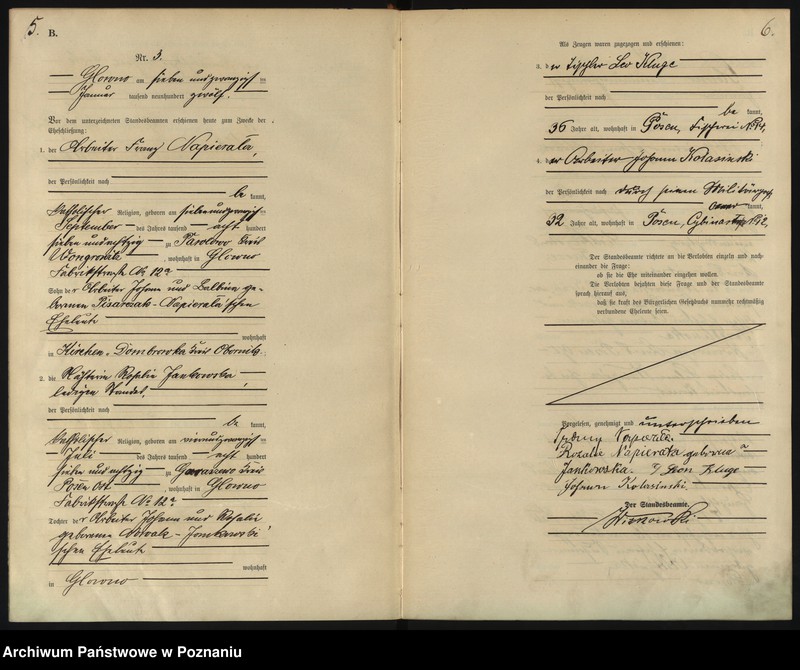 5. B.
Nr. 3.
Glowno am sieben und zwanzigsten
Januar tausend neunhundert zwölf.
Vor dem unterzeichneten Standesbeamten erschienen heute zum Zwecke der
Eheschließung:
1. der Arbeiter Franz Napierała,
der Persönlichkeit nach
be kannt,
katholischer Religion, geboren am sieben und zwanzigsten
September des Jahres tausend acht hundert
sieben und achtzig zu Kreis
Wongrowitz, wohnhaft in Glowno
Fabrikstraße No 12a
Sohn der Arbeiter Johann und Balbina ge-
borenen Pisarczak - Napierala'schen
Eheleute
wohnhaft
in Kirchen-Dombrowka Kreis Obornik.
2. die Rosalie Jankowska,
ledigen Standes,
der Persönlichkeit nach
be kannt,
katholischer Religion, geboren am vierundzwanzigsten
Juli des Jahres tausend acht hundert
sieben und achtzig zu Kreis
Posen Ost, wohnhaft in Glowno
Fabrikstraße No 12a
Tochter der Arbeiter Johann und Rosalie
geborenen Nowak - Jankowski'
schen Eheleute
wohnhaft
in Glowno
6.
Als Zeugen waren zugezogen und erschienen:
3. der Leo Kluge
der Persönlichkeit nach
be kannt,
36 Jahre alt, wohnhaft in Posen, Fischerei
4. der Arbeiter Johann Kolasinski
der Persönlichkeit nach durch seinen
kannt,
32 Jahre alt, wohnhaft in Posen,
Der Standesbeamte richtete an die Verlobten einzeln und nach-
einander die Frage:
ob sie die Ehe miteinander eingehen wollen.
Die Verlobten bejahten diese Frage und der Standesbeamte
sprach hierauf aus,
daß sie kraft des Bürgerlichen Gesetzbuchs nunmehr rechtmäßig
verbundene Eheleute seien.
Vorgelesen, genehmigt und unterschrieben
Napierała.
Rozalie Napierała geborene
Jankowska. Leon Kluge
Johann Kolasinski
Der Standesbeamte.
Archiwum Państwowe w Poznaniu